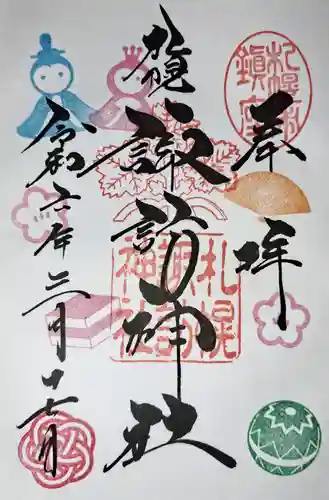 奉拝
札幌
諏訪神社
令和六年三月十七日
札幌
諏訪
神社
札幌
鎮座